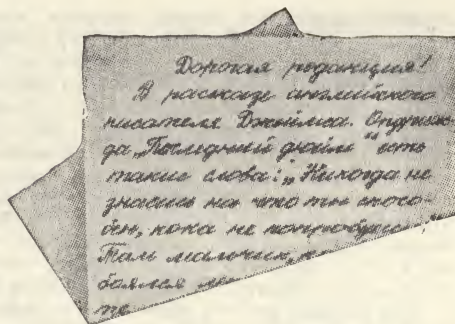 Дорогая редакция!
В рассказе английского
писателя Джеймса Олдридж-
да „Последний дюйм" есть
такие слова: „Никогда не
знаешь на что ты спосо-
бен, пока не попробуешь
Там мальчик,
боялся
те